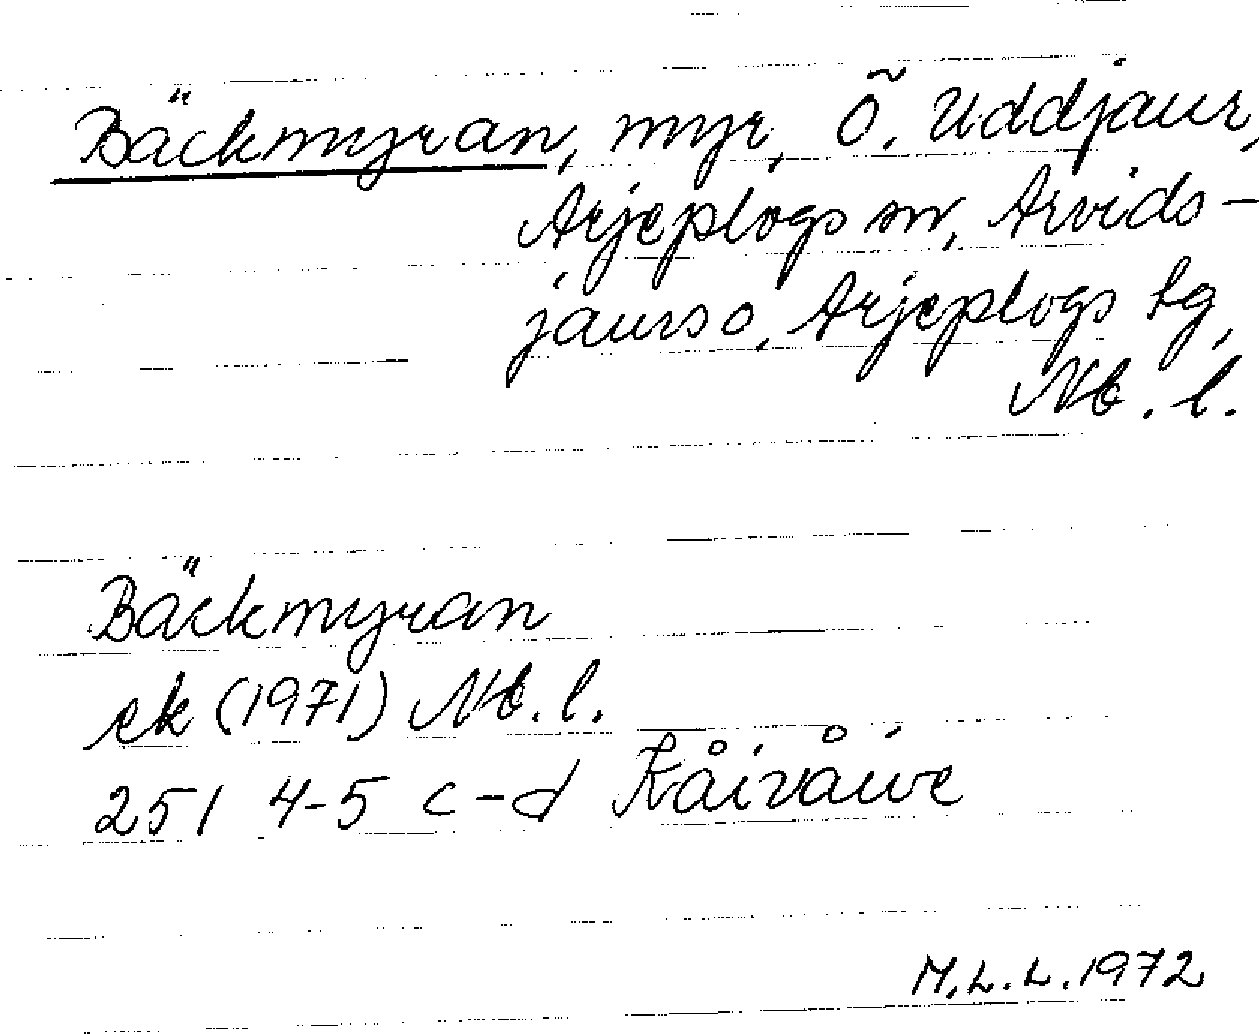 Bäckmyran, myr, Ö. Uddjaur,
Arjeplogs sn, Arvids-
jaurs o. Arjeplogs tg,
Nb. l.
Bäckmyran
ek (1971) Nb. l.
25 I 4-5 c-d Råivåive
M.L.L. 1972